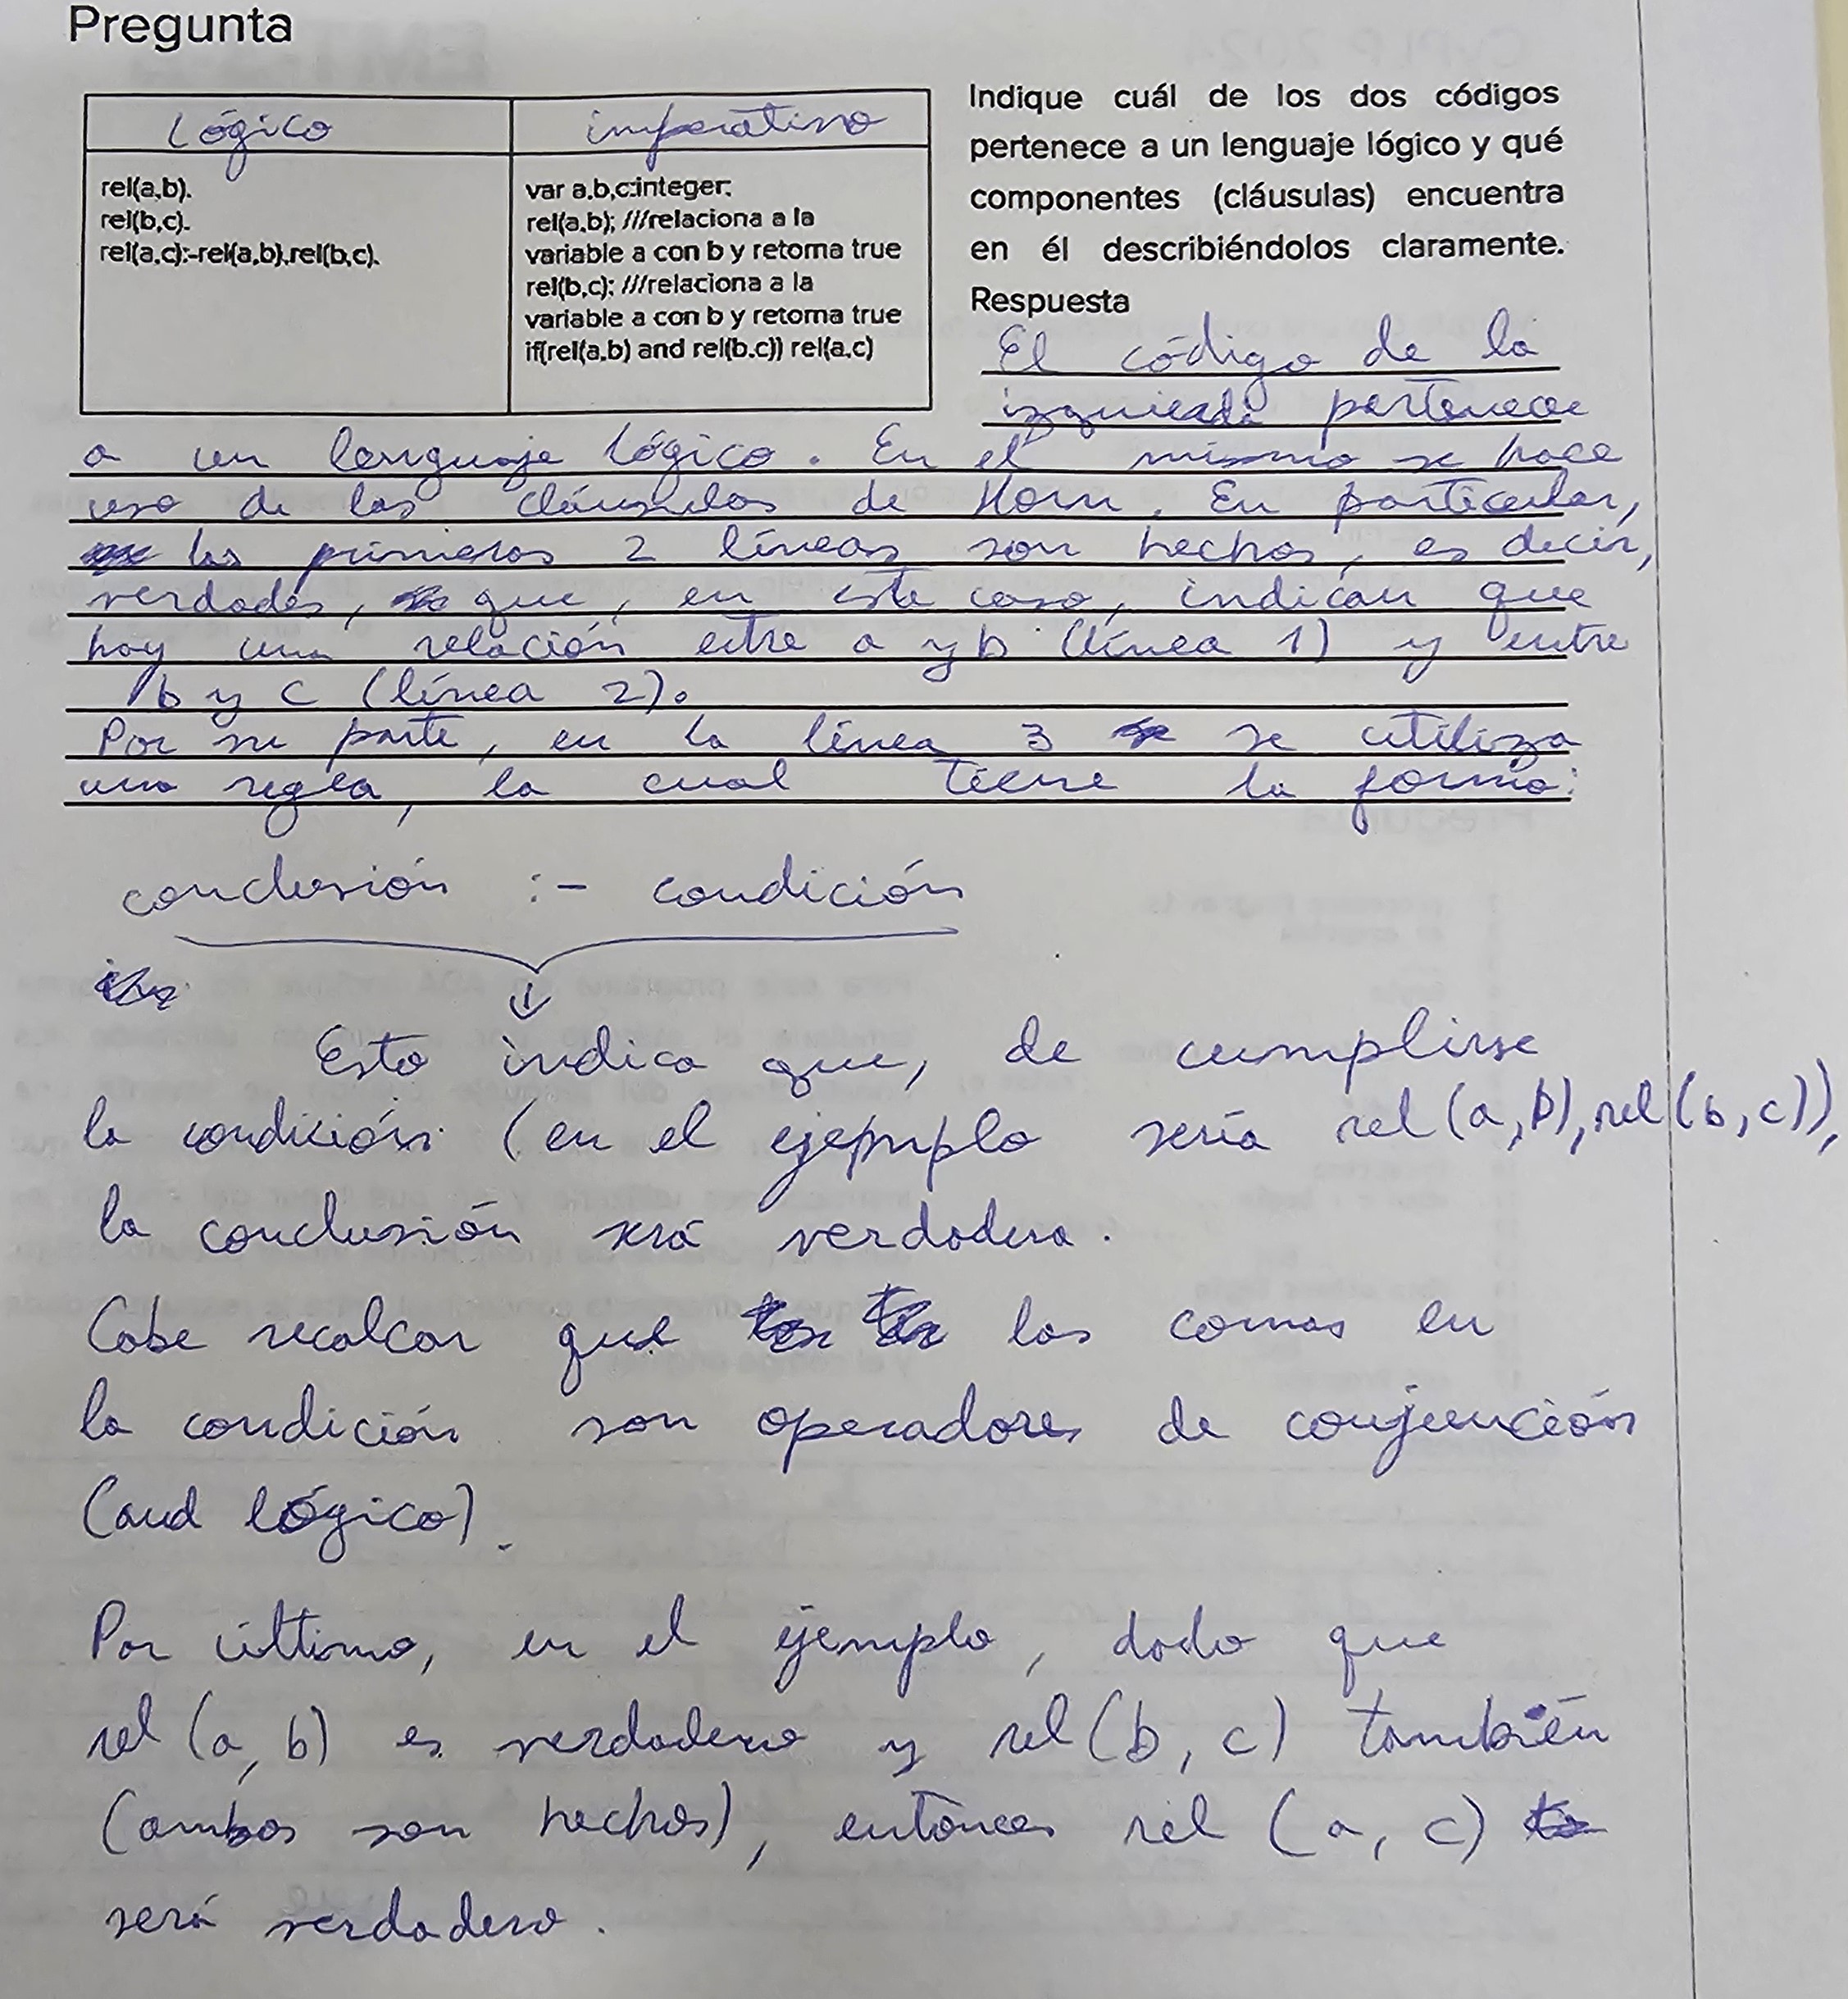 Pregunta
Lógico
imperativo
rel(a,b).
rel(b,c).
rel(a,c):-rel(a,b),rel(b,c).
var a,b,c:integer;
rel(a,b); ///relaciona a la
variable a con b y retorna true
rel(b,c); ///relaciona a la
variable a con b y retorna true
if(rel(a,b) and rel(b,c)) rel(a,c)
Indique cuál de los dos códigos
pertenece a un lenguaje lógico y qué
componentes (cláusulas) encuentra
en él describiéndolos claramente.
Respuesta
El código de la
izquierda pertenece
a un lenguaje lógico. En el mismo se hace
uso de las cláusulas de Horn. En particular,
las primeras 2 líneas son hechos, es decir,
verdades, que, en este caso, indican que
hay una relación entre a y b (línea 1) y entre
b y c (línea 2).
Por su parte, en la línea 3 se utiliza
una regla, la cual tiene la forma:
conclusión :- condición
Esto indica que, de cumplirse
la condición (en el ejemplo sería rel(a,b),rel(b,c)),
la conclusión será verdadera.
Cabe recalcar que las comas en
la condición son operadores de conjunción
(and lógico).
Por último, en el ejemplo, dado que
rel(a,b) es verdadero y rel(b,c) también
(ambos son hechos), entonces rel(a,c)
será verdadero.